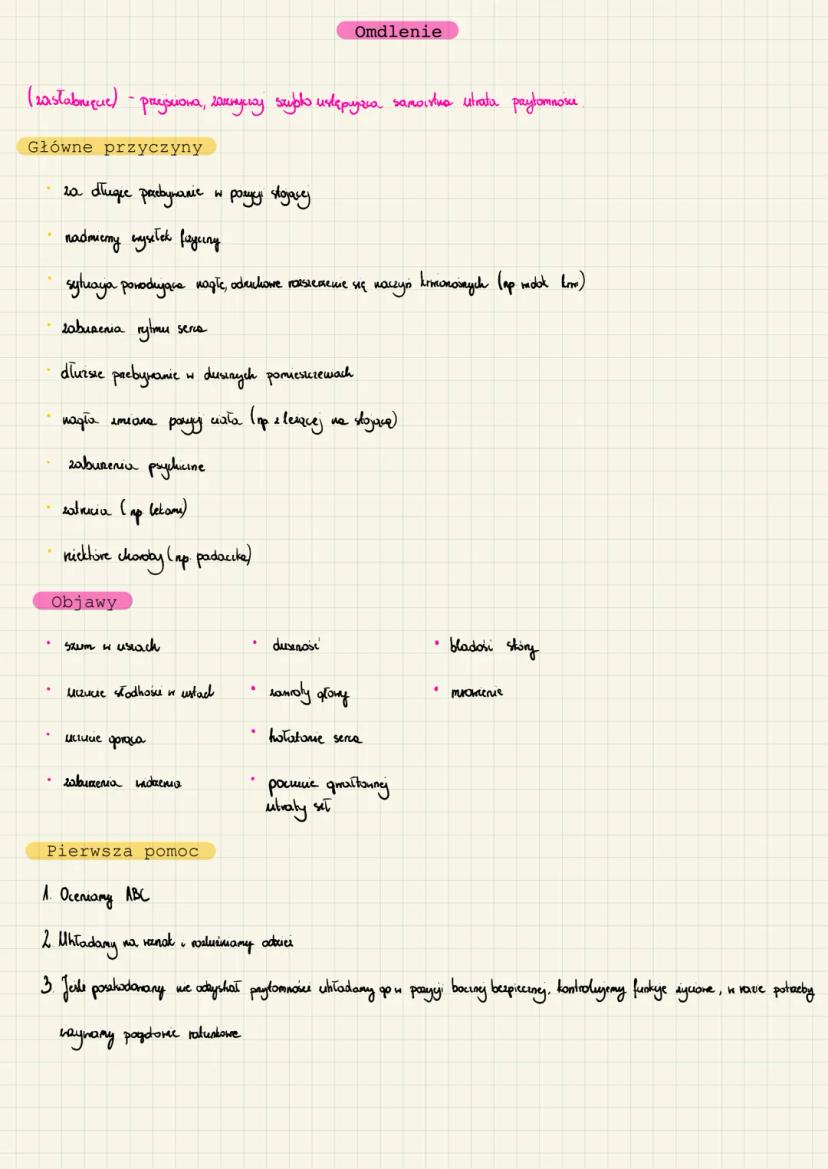 Omdlenie
(zasłabnięcie) - przejściowa, zazwyczaj szybko ustępująca samoistna utrata przytomności
Główne przyczyny
• za długie przebywanie w pozycji stojącej
• nadmierny wysiłek fizyczny
• sytuacja powodująca nagłe, odruchowe rozszerzenie się naczyń krwionośnych (np widok krwi)
• zaburzenia rytmu serca
• dłuższe przebywanie w dusznych pomieszczeniach
• nagła zmiana pozycji ciała (np z leżącej na stojącą)
• zaburzenia psychiczne
• zatrucia (np lekami)
• niektóre choroby (np. padaczka)
Objawy
• szum w uszach • duszność • bladość skóry
• uczucie słodkości w ustach • zawroty głowy • mrowienie
• uczucie gorąca • kołatanie serca
• zaburzenia widzenia • poczucie gwałtownej
utraty sił
Pierwsza pomoc
1. Oceniamy ABC
2. Układamy na wznak i rozluźniamy odzież
3. Jeśli poszkodowany nie odzyskał przytomności układamy go w pozycji bocznej bezpiecznej, kontrolujemy funkcje życiowe, w razie potrzeby
wzywamy pogotowie ratunkowe